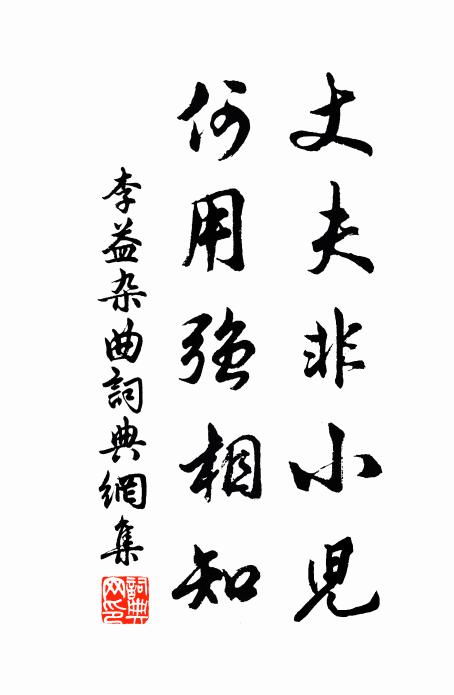 丈夫非小児
何用強相知
李益杂曲詞典網集
詞典网印